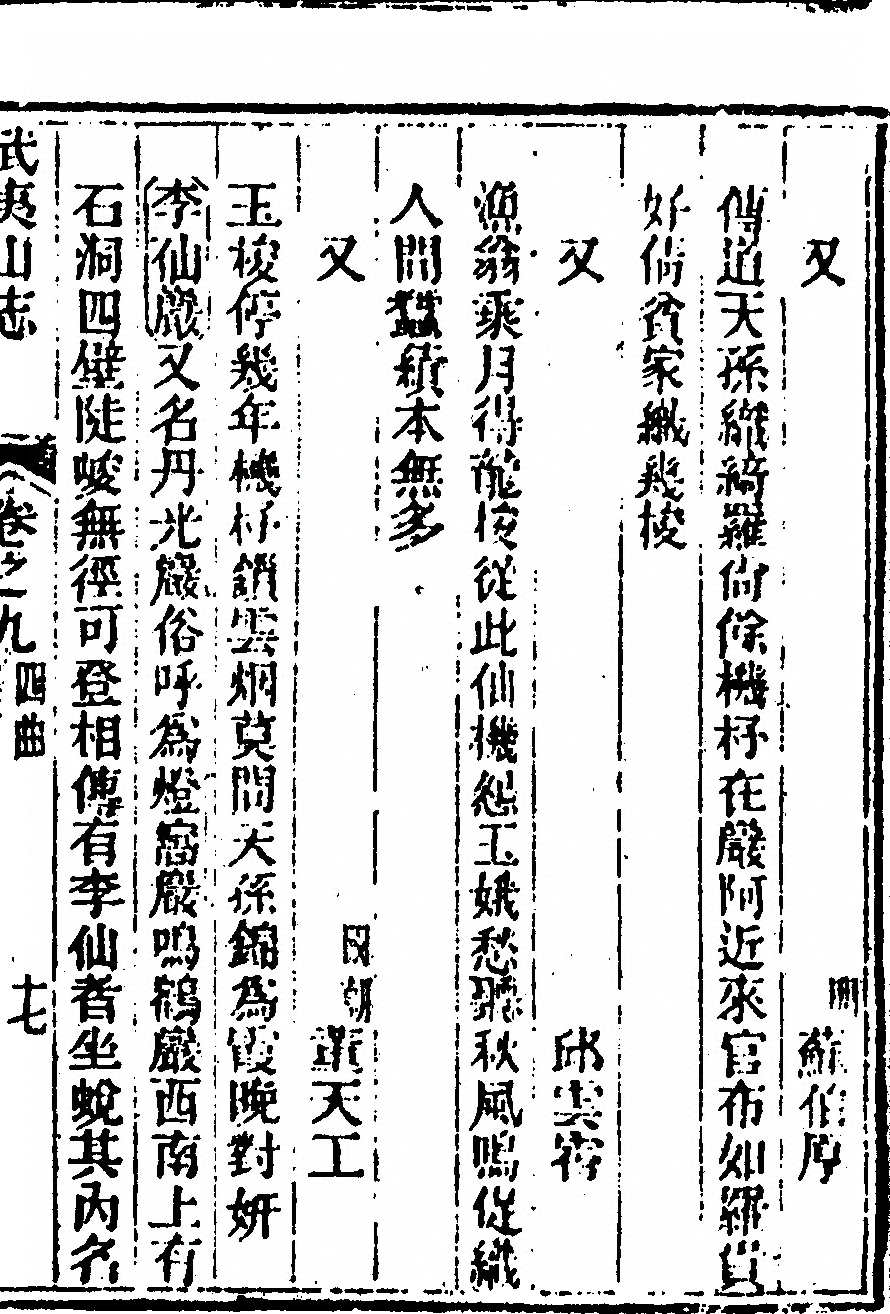 又 明 蘇伯厚
傳道天孫織綺羅尚餘機杼在巖阿近來官布如羅
好倩貧家織幾梭
又 邱雲霄
漁翁乘月得龍梭從此仙機怨玉娥愁聽秋風鳴促織
人間蠶績本無多
又 國朝 董天工
玉梭停幾年機杼鎖雲烟莫問天孫錦為霞晚對妍
李仙巖又名丹光巖俗呼為燈窩巖鳴鶴巖西南上有
石洞四壁陡峻無徑可登相傳有李仙者坐蛻其內名
武夷山志 卷之九 四曲 十七